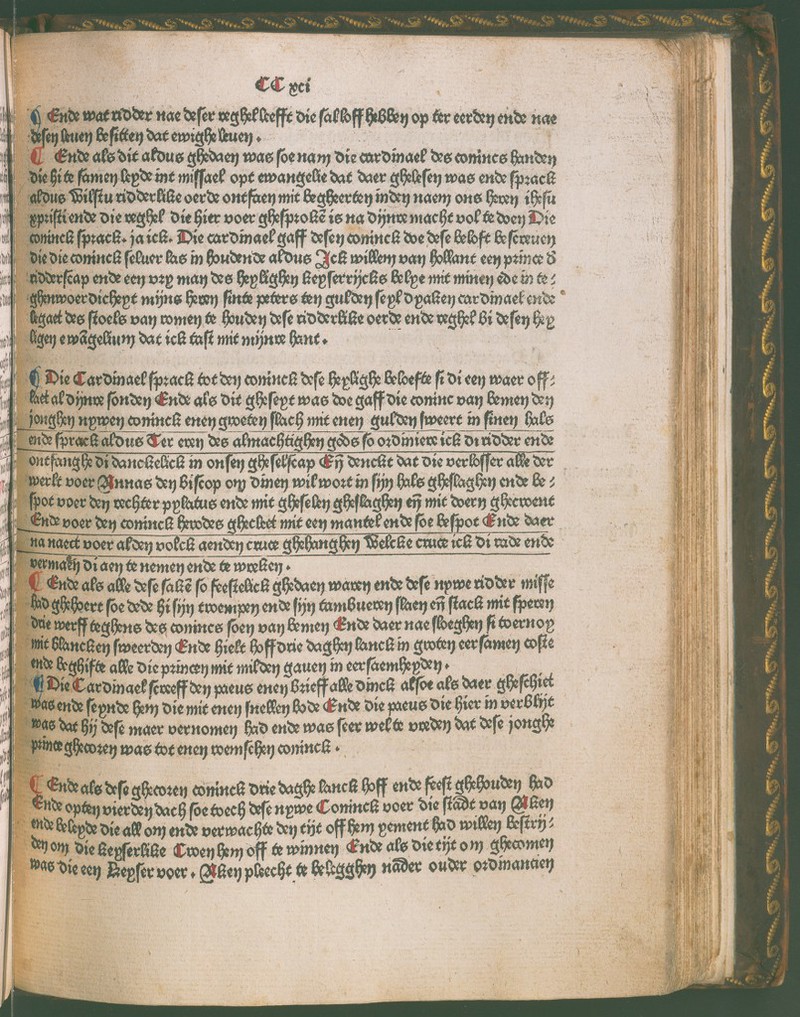 CC xci
¶ Ende wat ridder nae deser reghel leefft die sal loff hebben op ter eerden ende nae
desen leuen besitten dat ewighe leuen.
¶ Ende als dit aldus ghedaen was soe nam die cardinael des conincs handen
die hi te samen leyde int missael opt ewangelie dat daer ghelesen was ende sprack
aldus Wilstu ridderlike oerde ontfaen mit begheerten inden naem ons heren ihesu
xpristi ende die reghel die hier voer ghesprokē is na dijnre macht vol te doen Die
coninck sprack. ja ick. Die cardinael gaff desen coninck doe dese beloft bescreuen
die die coninck seluer las in houdende aldus Ick willem van hollant een prince d̕
ridderscap ende een vry man des heylighen keyserrijcks belye mit minen ede in te⸗
ghenwoerdicheyt mijns heren sinte peters ten gulden seyl dyaken cardinael ende
legaet des stoels van romen te houden dese ridderlike oerde ende reghel bi desen hey
ligen ewāgelium dat ick tast mit mijnre hant.
¶ Die Cardinael sprack tot den coninck dese heylighe beloefte si di een waer off⸗
laet al dijnre sonden Ende als dit gheseyt was doe gaff die coninc van bemen den
jonghen nywen coninck enen groeten slach mit enen gulden sweert in sinen hals
ende sprack aldus Ter eren des almachtighen gods so ordiniere ick di ridder ende
ontfanghe di danckelick in onsen gheselscap Eñ denckt dat die verlosser alle der
werlt voer Annas den biscop om dinen wil wort in sijn hals gheslaghen ende be⸗
spot voer den rechter pylatus ende mit gheselen gheslaghen eñ mit doern ghecroent
Ende voer den coninck herodes ghecleet mit een mantel ende soe bespot Ende daer
na naect voer alden volck aenden cruce ghehanghen Welcke cruce ick di rade ende
vermaen di aen te nemen ende te wreken.
¶ Ende als alle dese sakē so feestelick ghedaen waren ende dese nywe ridder misse
had ghehoert soe dede hi sijn troempen ende sijn tambueren slaen eñ stack mit speren
drie werff teghens des conincs soen van bemen Ende daer nae sloeghen si toernoy
mit blancken sweerden Ende hielt hoff drie daghen lanck in groten eersamen coste
ende beghifte alle die princen mit milden gauen in eersaemheyden.
¶ Die Cardinael screeff den paeus enen brieff alle dinck alsoe als daer gheschiet
was ende seynde hem die mit enen snellen bode Ende die paeus die hier in verblijt
was dat hij dese maer vernomen had ende was seer wel te vreden dat dese jonghe
prince ghecoren was tot enen roemschen coninck.
¶ Ende als dese ghecoren coninck drie daghe lanck hoff ende feest ghehouden had
Ende opten vierden dach soe toech dese nywe Coninck voer die stadt van Aken
ende beleyde die all om ende verwachte den tijt off hem yement had willen bestrij⸗
den om die keyserlike Croen hem off te winnen Ende als die tijt om ghecomen
was die een Keyser voer. Aken pleecht te belegghen nader ouder ordinancien